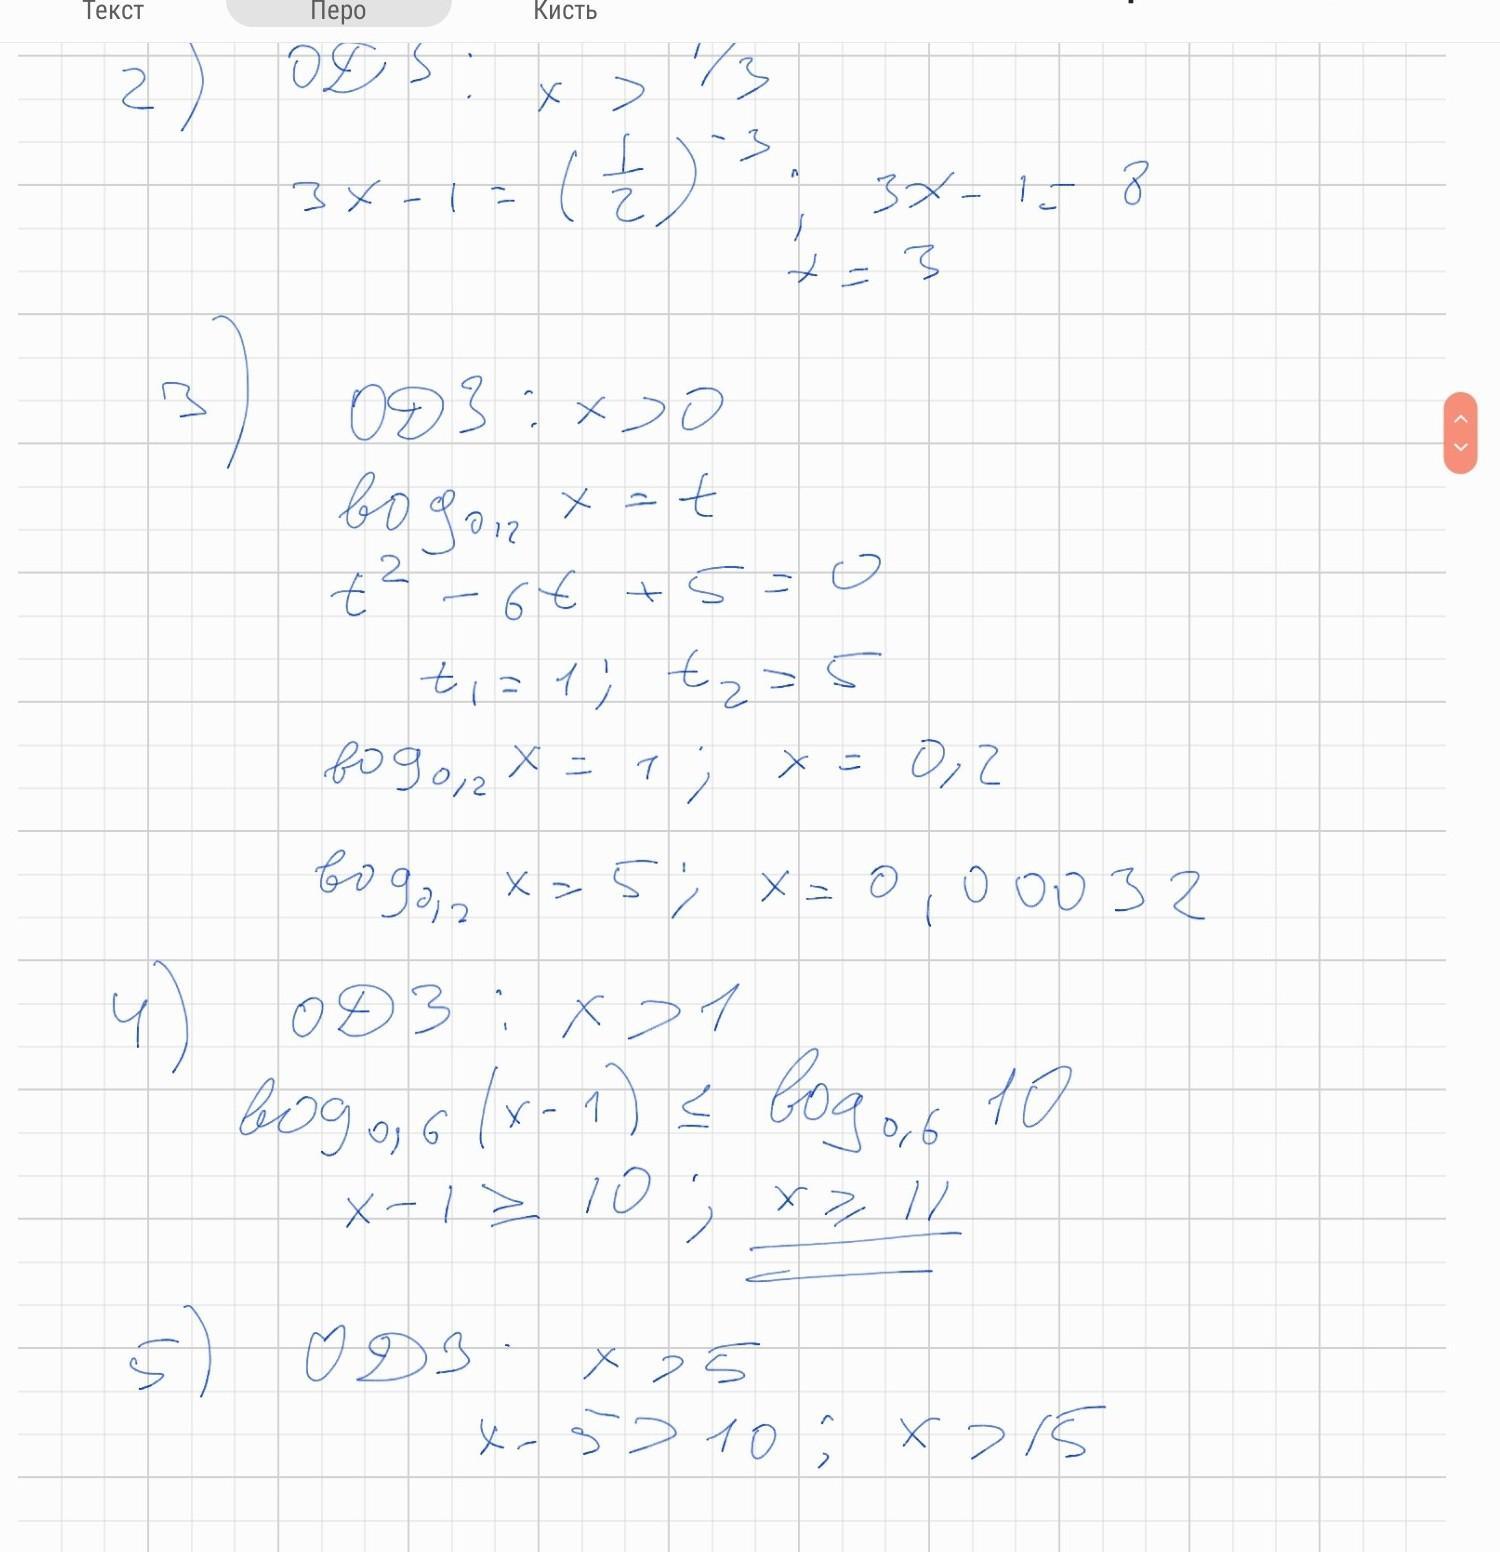 Текст Перо Кисть
2) ОДЗ: x > 1/3
3x - 1 = (1/2)^-3; 3x - 1 = 8
x = 3
3) ОДЗ: x > 0
log_0,2 x = t
t² - 6t + 5 = 0
t₁ = 1; t₂ = 5
log_0,2 x = 1; x = 0,2
log_0,2 x = 5; x = 0,00032
4) ОДЗ: x > 1
log_0,6 (x - 1) ≤ log_0,6 10
x - 1 ≥ 10; x ≥ 11
5) ОДЗ: x > 5
x - 5 > 10; x > 15